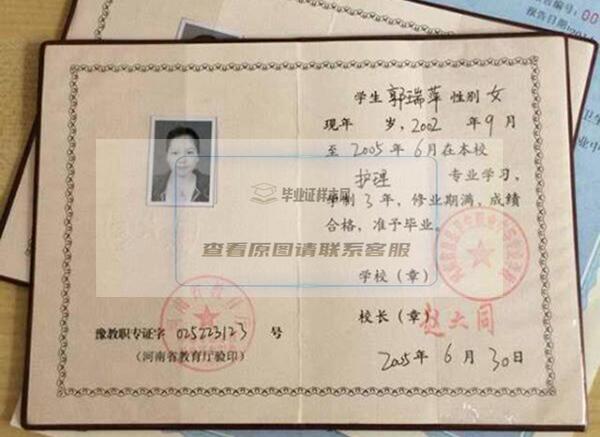 报告编号：00
报告日期：201
学生 郭瑞萍 性别 女
现年 岁，2002 年 9 月
至 2005 年 6 月在本校
护理 专业学习，
学制 3 年，修业期满，成绩
合格，准予毕业。
学校（章）
校长（章）
赵六同
豫教职专证字 025223123 号
（河南省教育厅验印）
2005 年 6 月 30 日
毕业证样本网
查看原图请联系客服